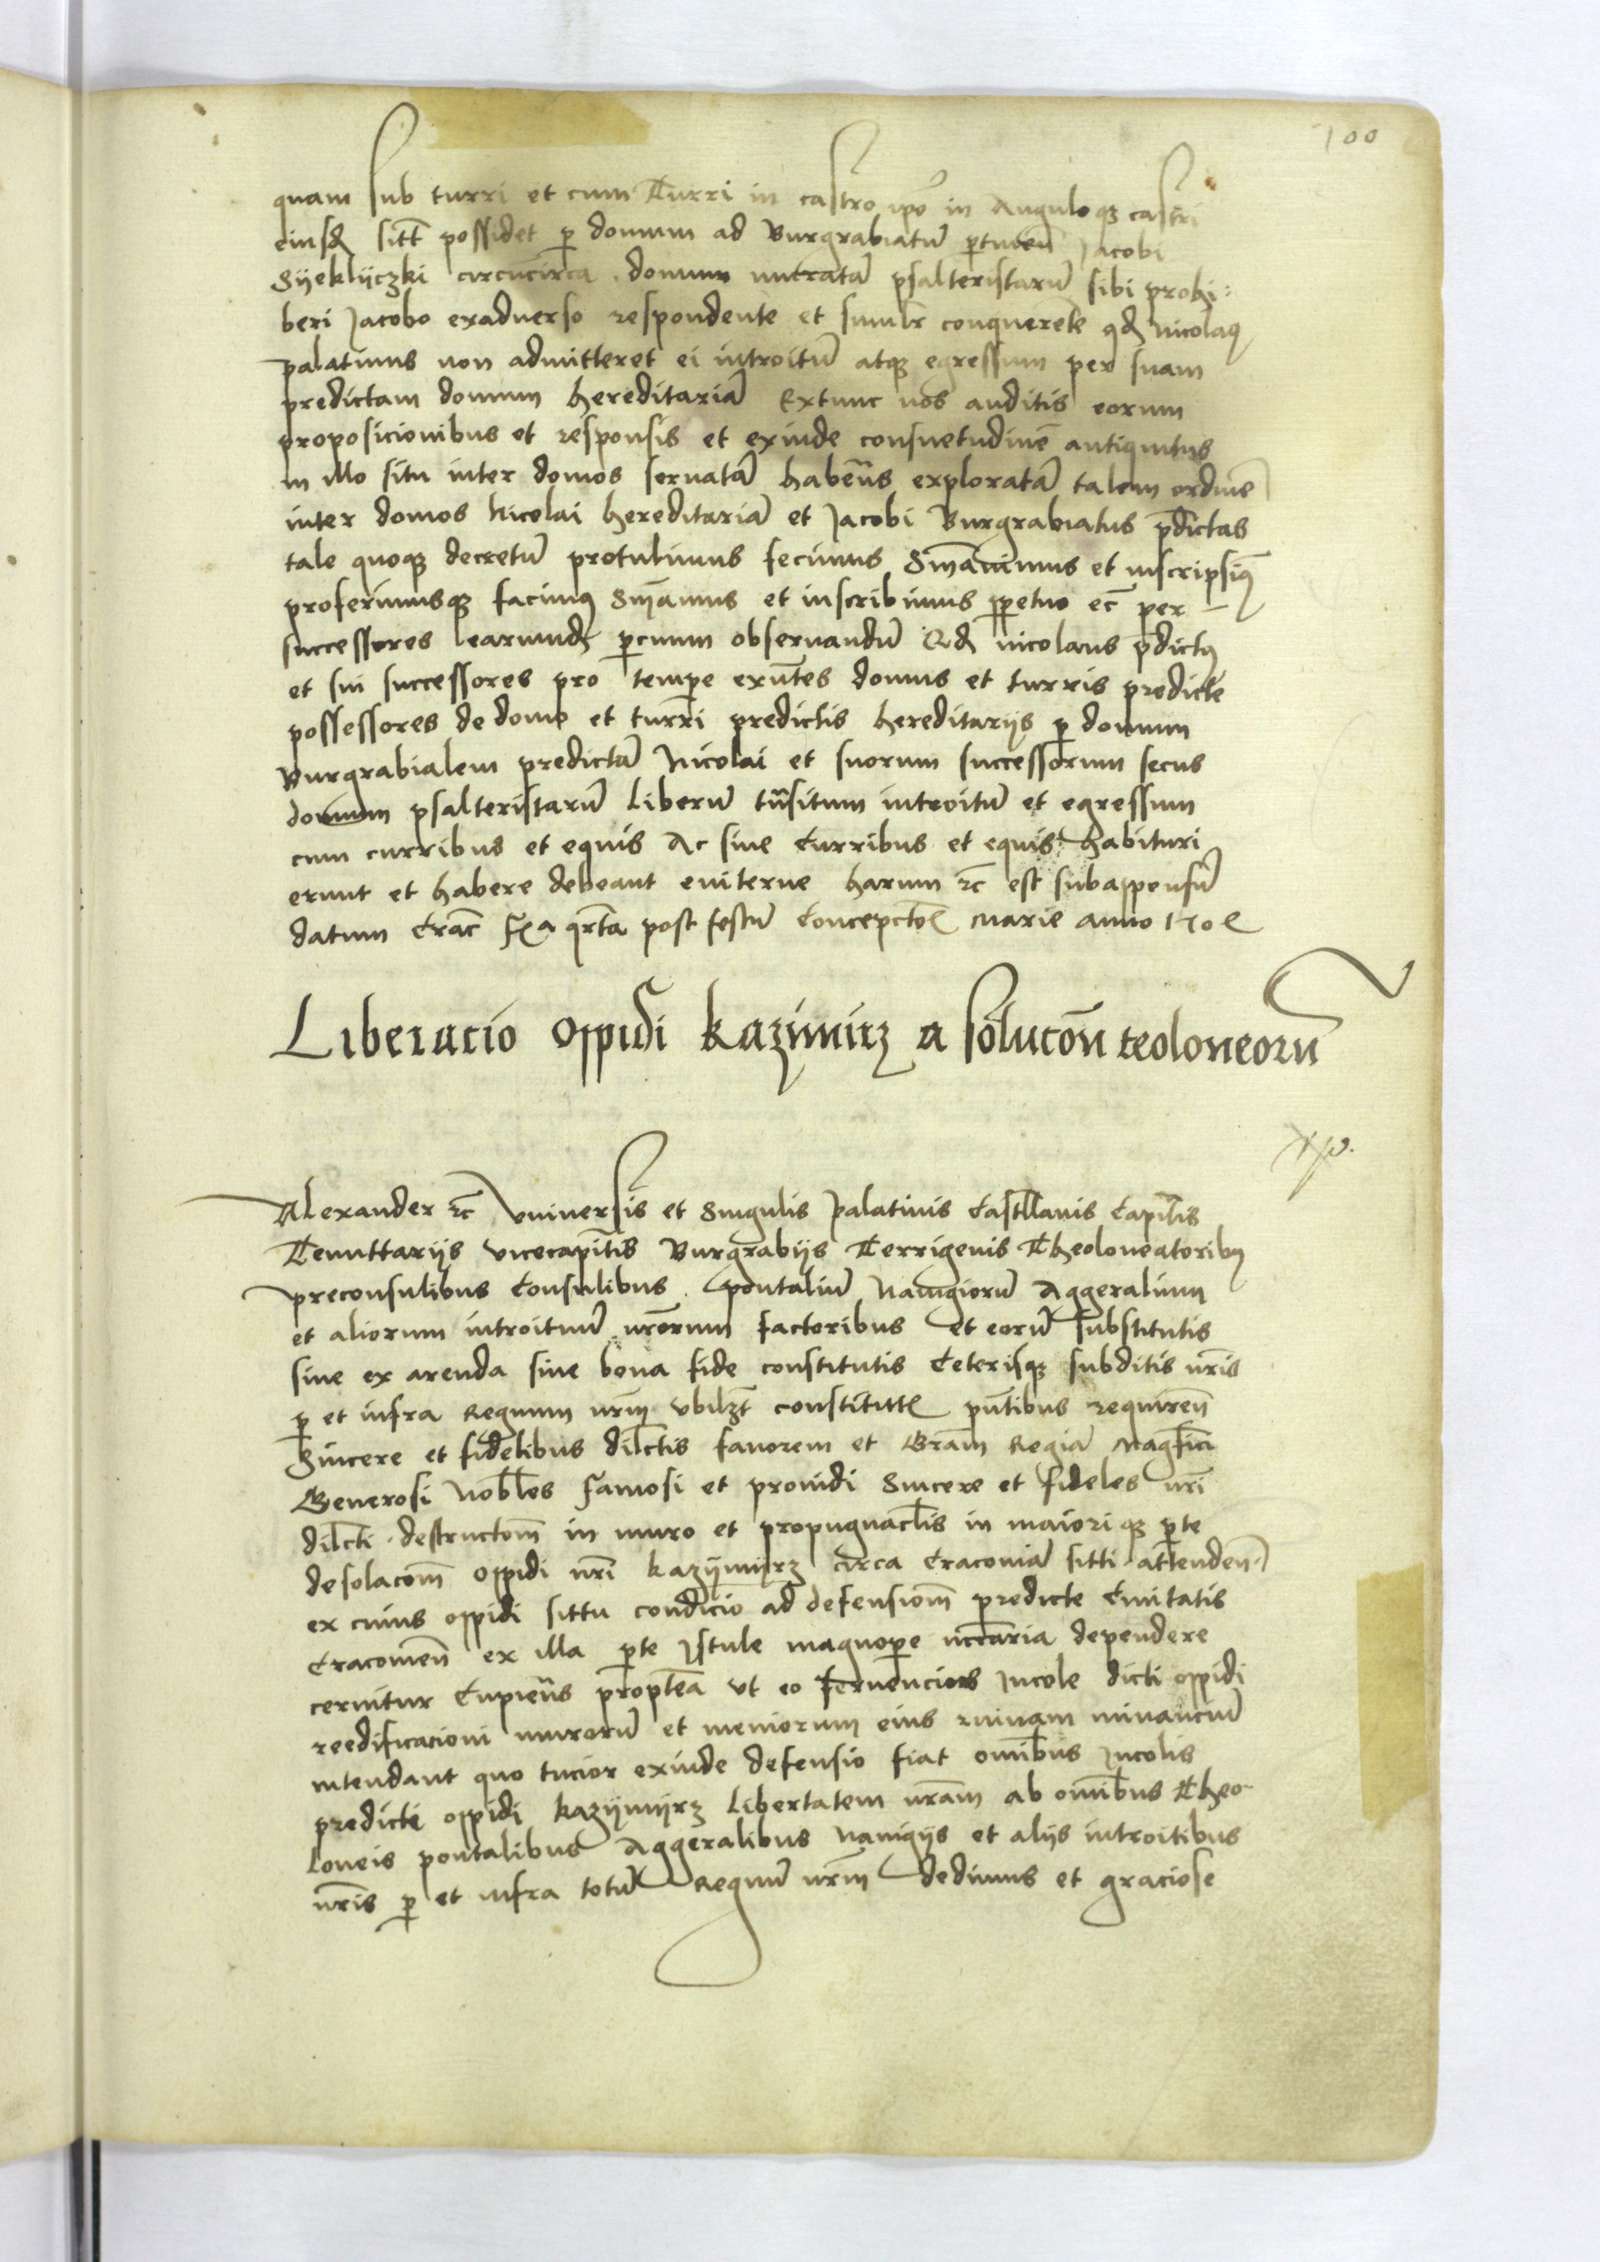 100
quam sub turri et cum Turri in castro ipō in Anguloqꝫ castri
eiusđ sitt̄ possidet ꝑ domum ad Burgrabiatū ꝑtineñ Jacobi
Syeklyczki circūcirca domum muratā psalteristarū sibi prohi:
beri Jacobo exaduerso respondente et similr conquerēte qđ Nicolaꝯ
palatinus non admitteret ei introitū atqꝫ egressum per suam
predictam domum hereditariā Extunc nos auditis eorum
proposicionibus et responsis et exinde consuetudinē antiquitus
in illo situ inter domos seruatā habētes exploratā talem ordinē
inter domos Nicolai hereditariā et Jacobi Burgrabiatus p̄dictas
tale quoqꝫ decretū protulimus fecimus Smāuimus et inscripsimꝯ
proferimusqꝫ facimꝯ Smāmus et inscribimus ꝑpetuo ec̄ per
successores earundē observandū Qđ nicolaus p̄dictꝯ
et sui successores pro tempe exn̄tes domus et turris predicte
possessores de domo et turri predictis hereditarijs ꝑ domum
Burgrabialem predictā Nicolai et suorum successorum secus
domum psalteristarū liberū tn̄situm introitū et egressum
cum curribus et equis Ac sine Curribus et equis habituri
erunt et habere debeant euiterne harum ꝛc̄ est subappensū
datum Crac̄ fa qrta post festū Concepctōis Marie anno 1501
Liberacio oppidi Kazimirz a solucōn teoloneorū
Alexander ꝛc̄ Vniuersis et Singulis Palatinis Castllanis Capitīs
Tenuttarijs vicecapitīs Burgrabijs Terrigenis Theoloneatoribꝯ
preconsulibus Consulibus pontaliū Nauigiorū Aggeralium
et aliorum introituū nrōrum factoribus et eorū substitutis
siue ex arenda siue bona fide constitutis Ceterisqꝫ subditis nrīs
ꝑ et infra Regnum nrm̄ vbilꝫt constitutt̄ pn̄tibus requireñ
Sincere et fidelibus dilctis fauorem et Grām Regiā Magfici
Generosi Nobles Famosi et prouidi Sincere et fideles nrī
dilcti destructōm in muro et propugnaclis in maioriqꝫ ꝑte
desolacōm oppidi nrī Kazymirz circa Cracouiā sitti attendeñ
ex cuius oppidi sittu condicio ad defensiōm predicte Ciuitatis
Cracouieñ ex illa ꝑte Istule magnoꝑe nccaria dependere
cernitur Cupiētes proptea vt eo feruencius Incole dicti oppidi
reedificacioni murorū et meniorum eius ruinam minanciū
intendant quo tucior exinde defensio fiat omībus Incolis
predicti oppidi Kazymyrz libertatem nrām ab omībus Theo
loneis pontalibus Aggeralibus Nauigijs et alijs introitibus
nrīs ꝑ et infra totū Regnū nrm̄ dedimus et graciose